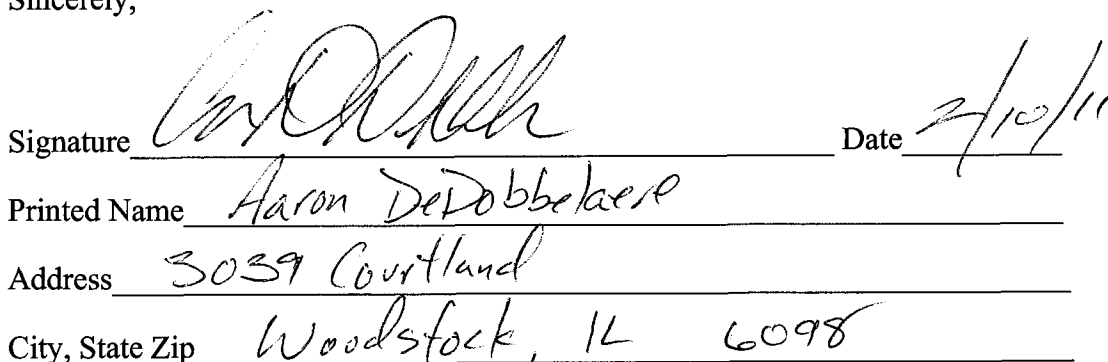 Sincerely,
Signature Date 2/10/11
Printed Name Aaron DeDobbelaere
Address 3039 Courtland
City, State Zip Woodstock, IL 6098